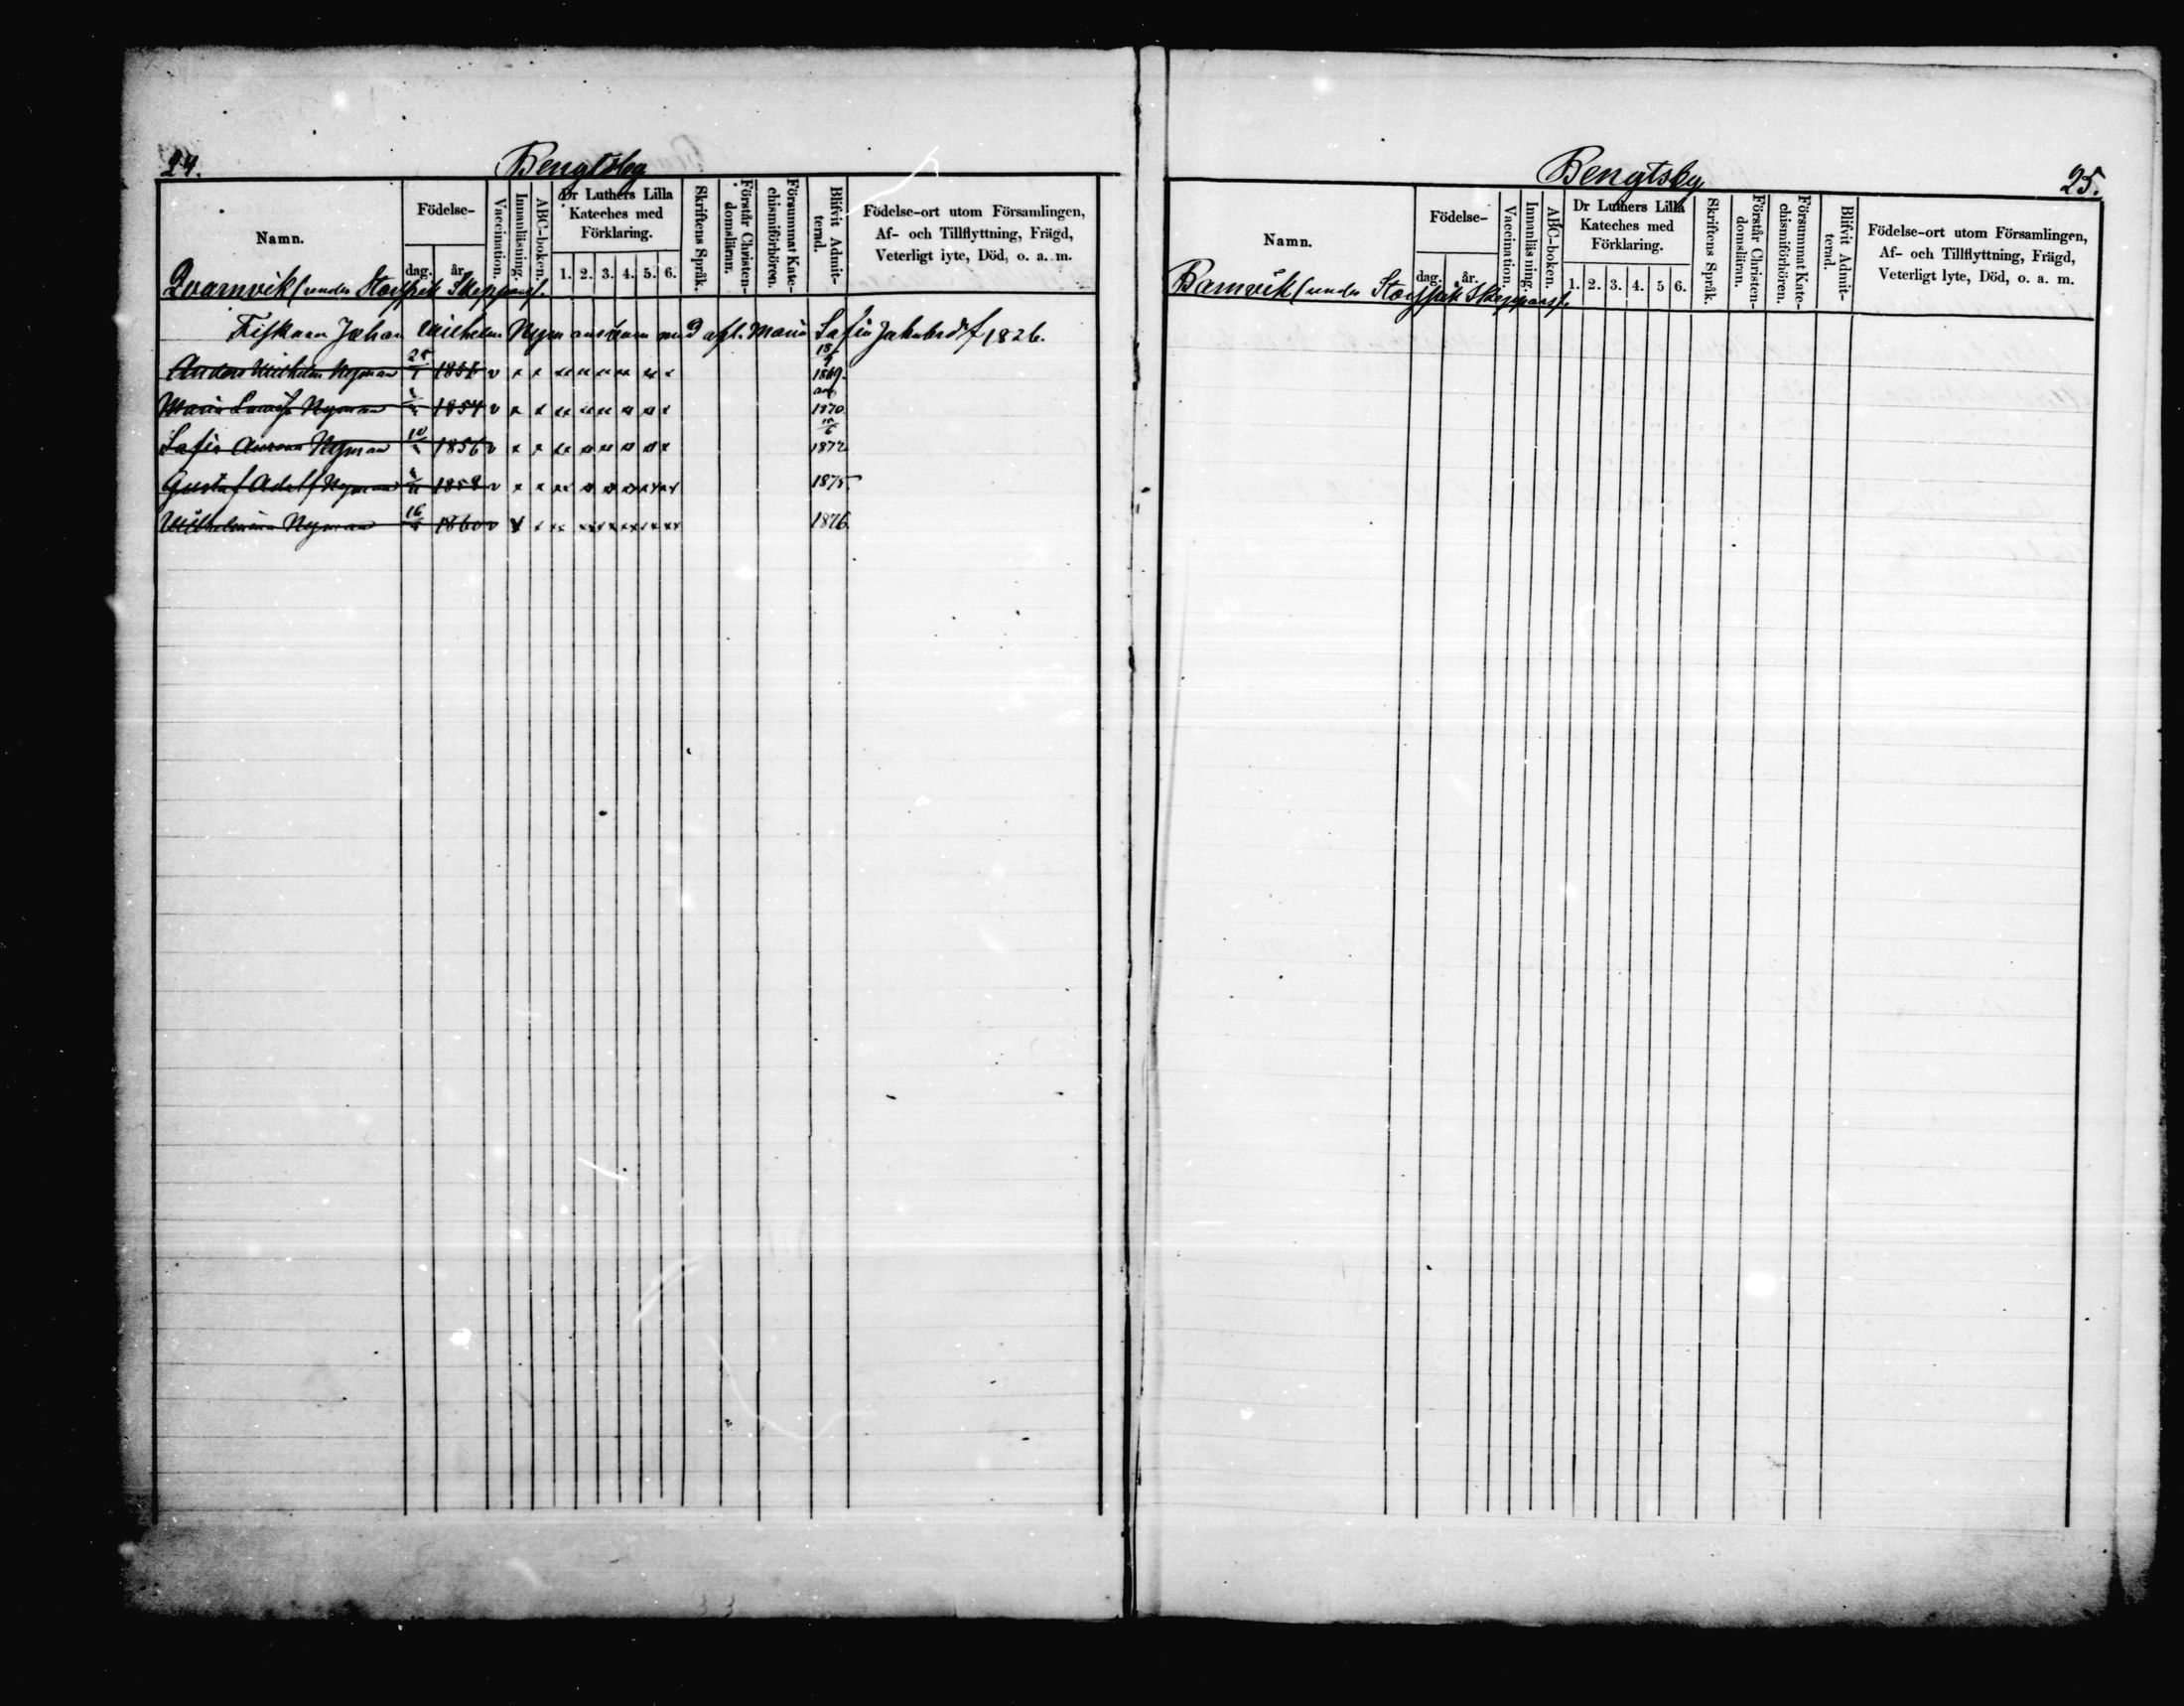 24.
Bengtsby
Namn.
Födelse-
dag.
år.
Vaccination.
Innanläsning.
ABC-boken.
Dr Luthers Lilla
Kateches med
Förklaring.
1. 2. 3. 4. 5. 6.
Skriftens Språk.
Förstår Christen-
domsläran.
Försummat Kate-
chismiförhören.
Blifvit Admit-
terad.
Födelse-ort utom Församlingen,
Af- och Tillflyttning, Frägd,
Veterligt lyte, Död, o. a. m.
Qvarnvik (under
Johan Wilhelm Nyman barn med Maria Sofia 1826.
Anders Wilhelm Nyman 1851 v x x 1869.
Maria Lovisa Nyman 1854 v x x 1870.
Sofia Aurora Nyman 1856 v x x 1872
Gustaf Adolf Nyman 1858 v x x 1875.
Wilhelmina Nyman 16 1860 v x x 1876
Bengtsby
25.
Namn.
Födelse-
dag.
år.
Vaccination.
Innanläsning.
ABC-boken.
Dr Luthers Lilla
Kateches med
Förklaring.
1. 2. 3. 4. 5 6.
Skriftens Språk.
Förstår Christen-
domsläran.
Försummat Kate-
chismiförhören.
Blifvit Admit-
terad.
Födelse-ort utom Församlingen,
Af- och Tillflyttning, Frägd,
Veterligt lyte, Död, o. a. m.
(under